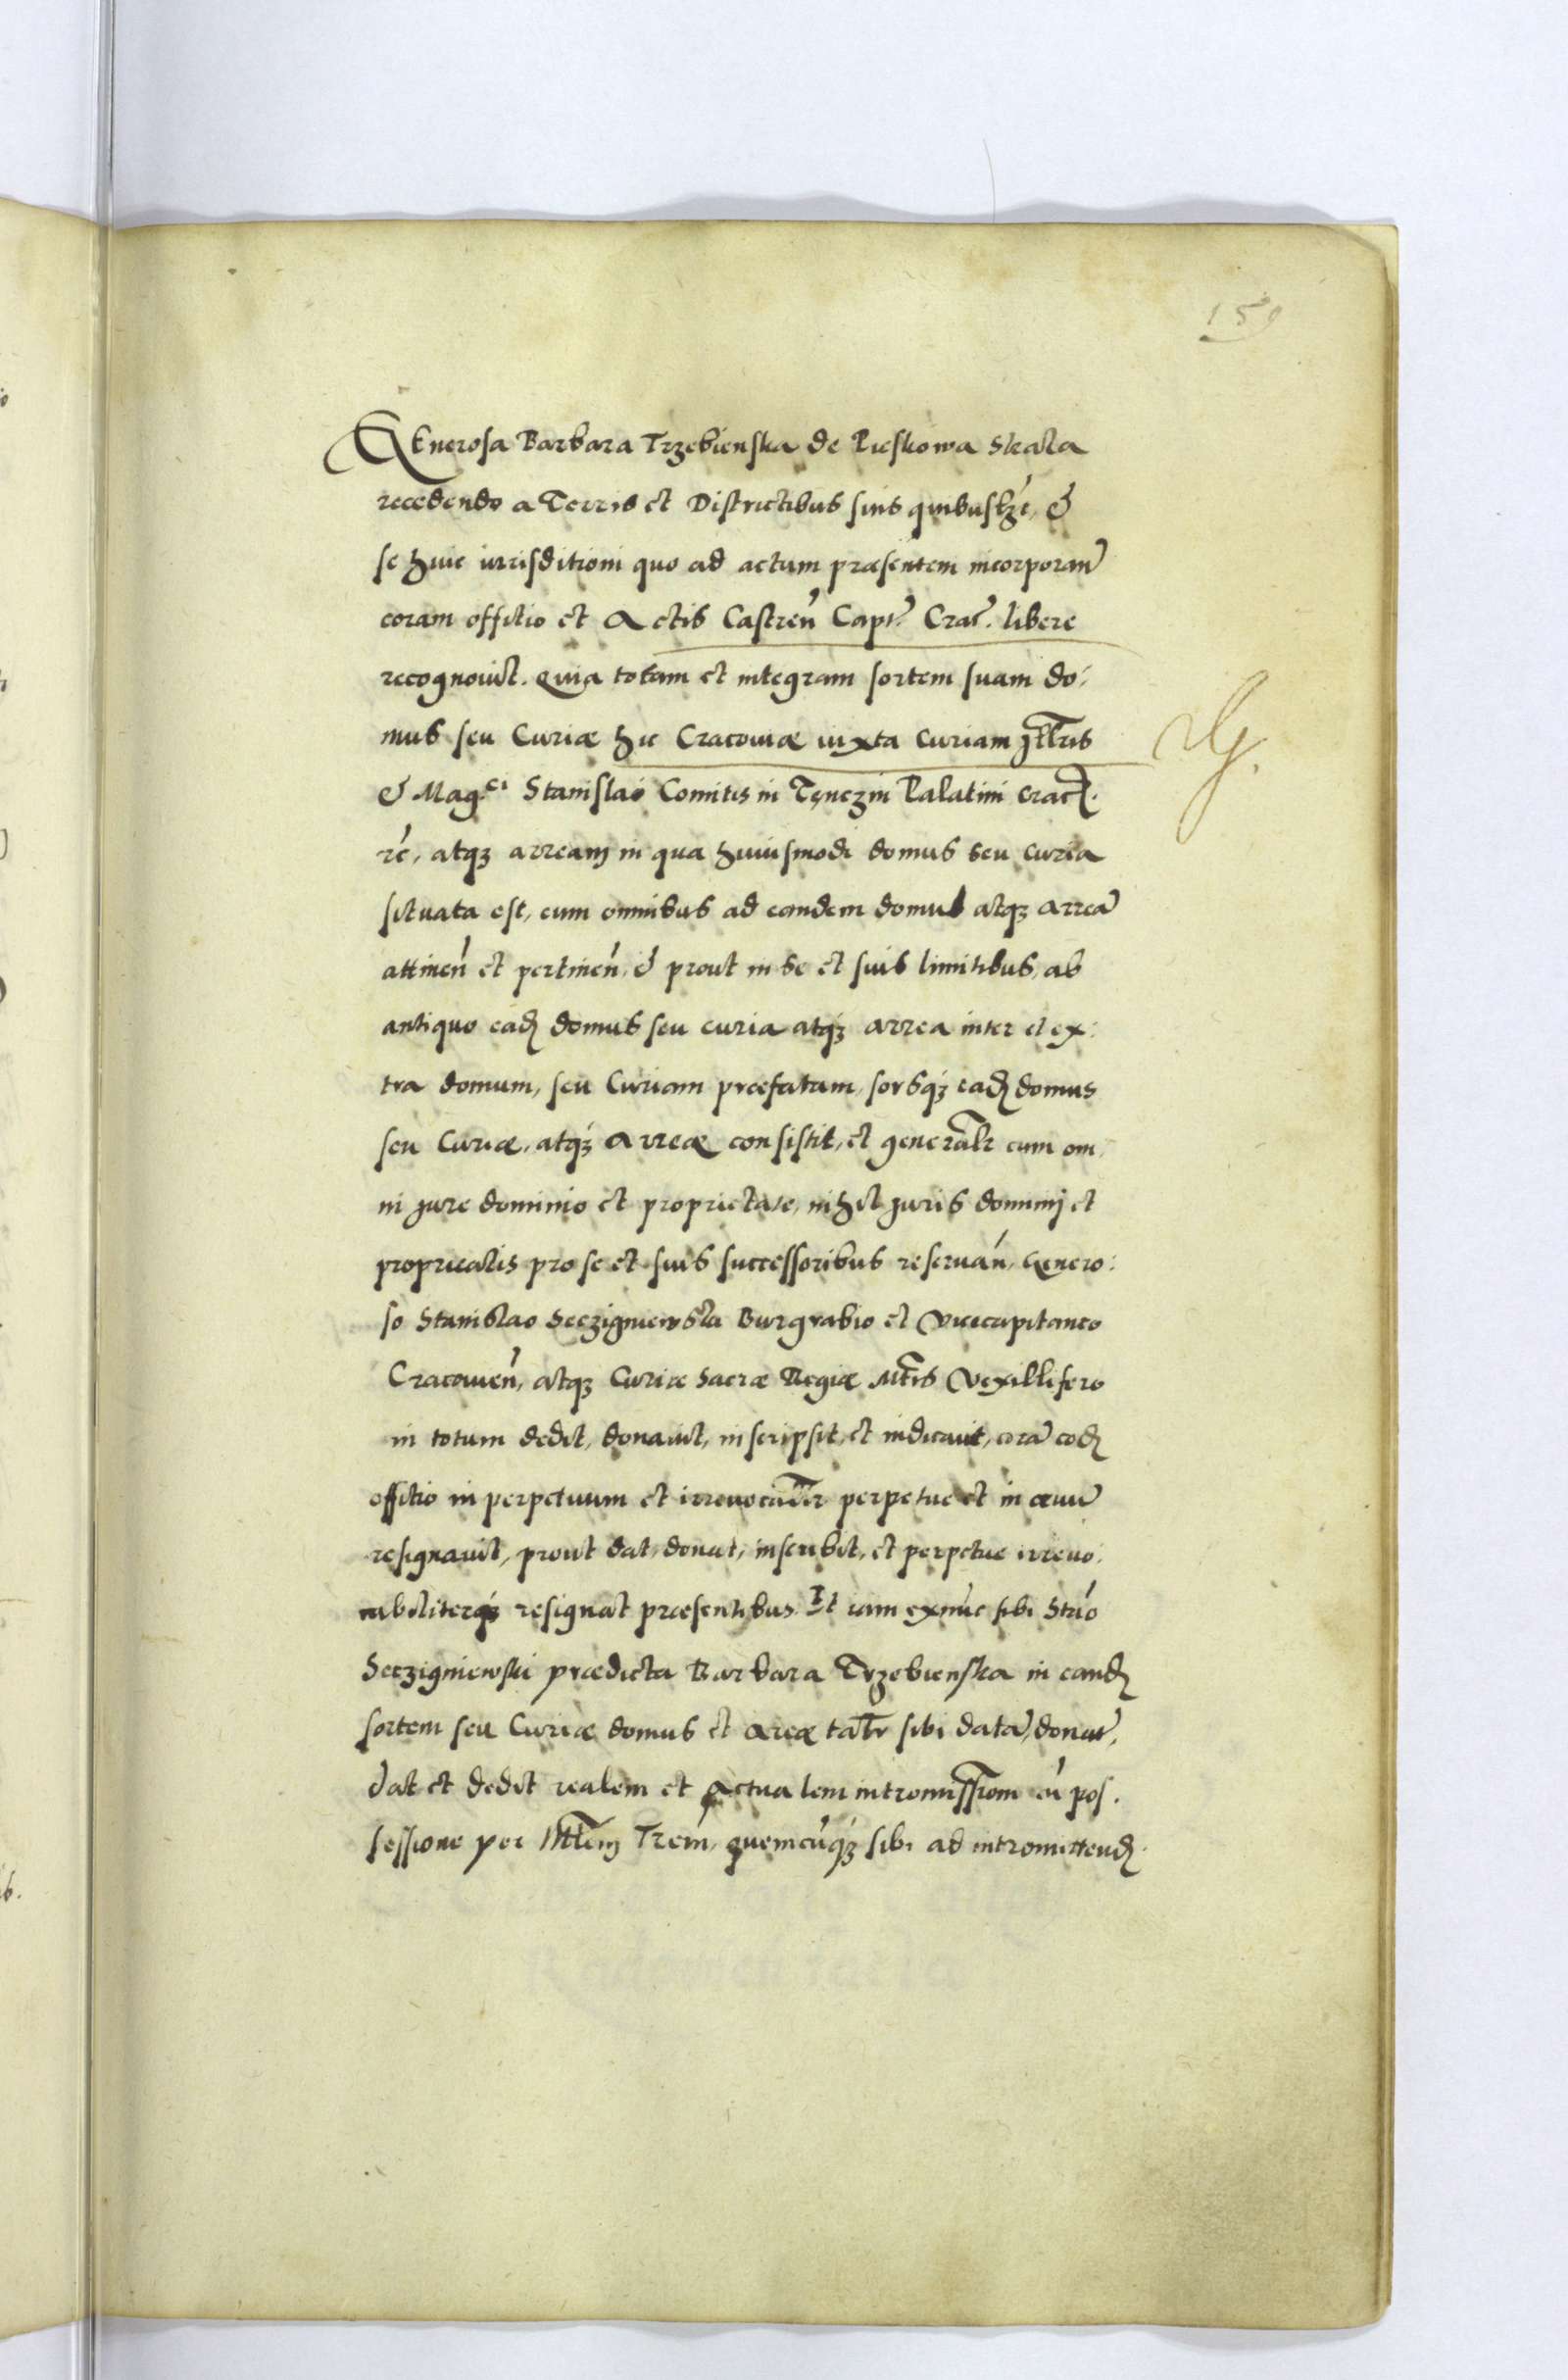 159
GEnerosa Barbara Trzebienska de Pieskowa Skala
recedendo a Terris et Districtibus suis quibuslꝫ, &
se huic iurisditioni quo ad actum præsentem incorporan̄
coram offitio et Actis Castren̄ Capt. Crac. libere
recognouit. Quia totam et integram sortem suam do:
mus seu Curiæ hic Cracouiæ iuxta Curiam Jllris
& Mag.ci Stanislai Comitis in Tęnczin Palatini Crac.
rc̄, atqꝫ arream in qua huiusmodi domus seu curia
situata est, cum omnibus ad eandem domus atqꝫ arreā
attinen̄ et pertinen̄ & prout in se et suis limitibus, ab
antiquo ead domus seu curia atqꝫ arrea inter et ex:
tra domum, seu Curiam præfatam, sorsqꝫ ead domus
seu Curiæ, atqꝫ Arreæ consistit, et generalr cum om
ni jure dominio et proprietate, nihil juris dominij et
proprietatis pro se et suis successoribus reseruān, Genero:
so Stanislao Seczigniewski Burgrabio et Vicecapitaneo
Cracouien̄, atqꝫ Curiæ Sacræ Regiæ Mtis Vexillifero
in totum dedit, donauit, inscripsit, et indicauit, corā eod
offitio in perpetuum et irreuocablr perpetue et in æuū
resignauit, prout dat, donat, inscribit, et perpetue irreuo:
cabiliterqꝫ resignat præsentibus. Et iam exnūc sibi Stāo
Seczigniewski prædicta Barbara Trzebienska in eand
sortem seu Curiæ domus et areæ talr sibi datā, donat,
dat et dedit realem et Actualem intromissiom cū pos.
sessione per Mtlem Trēm, quemcūqꝫ sibi ad intromittend